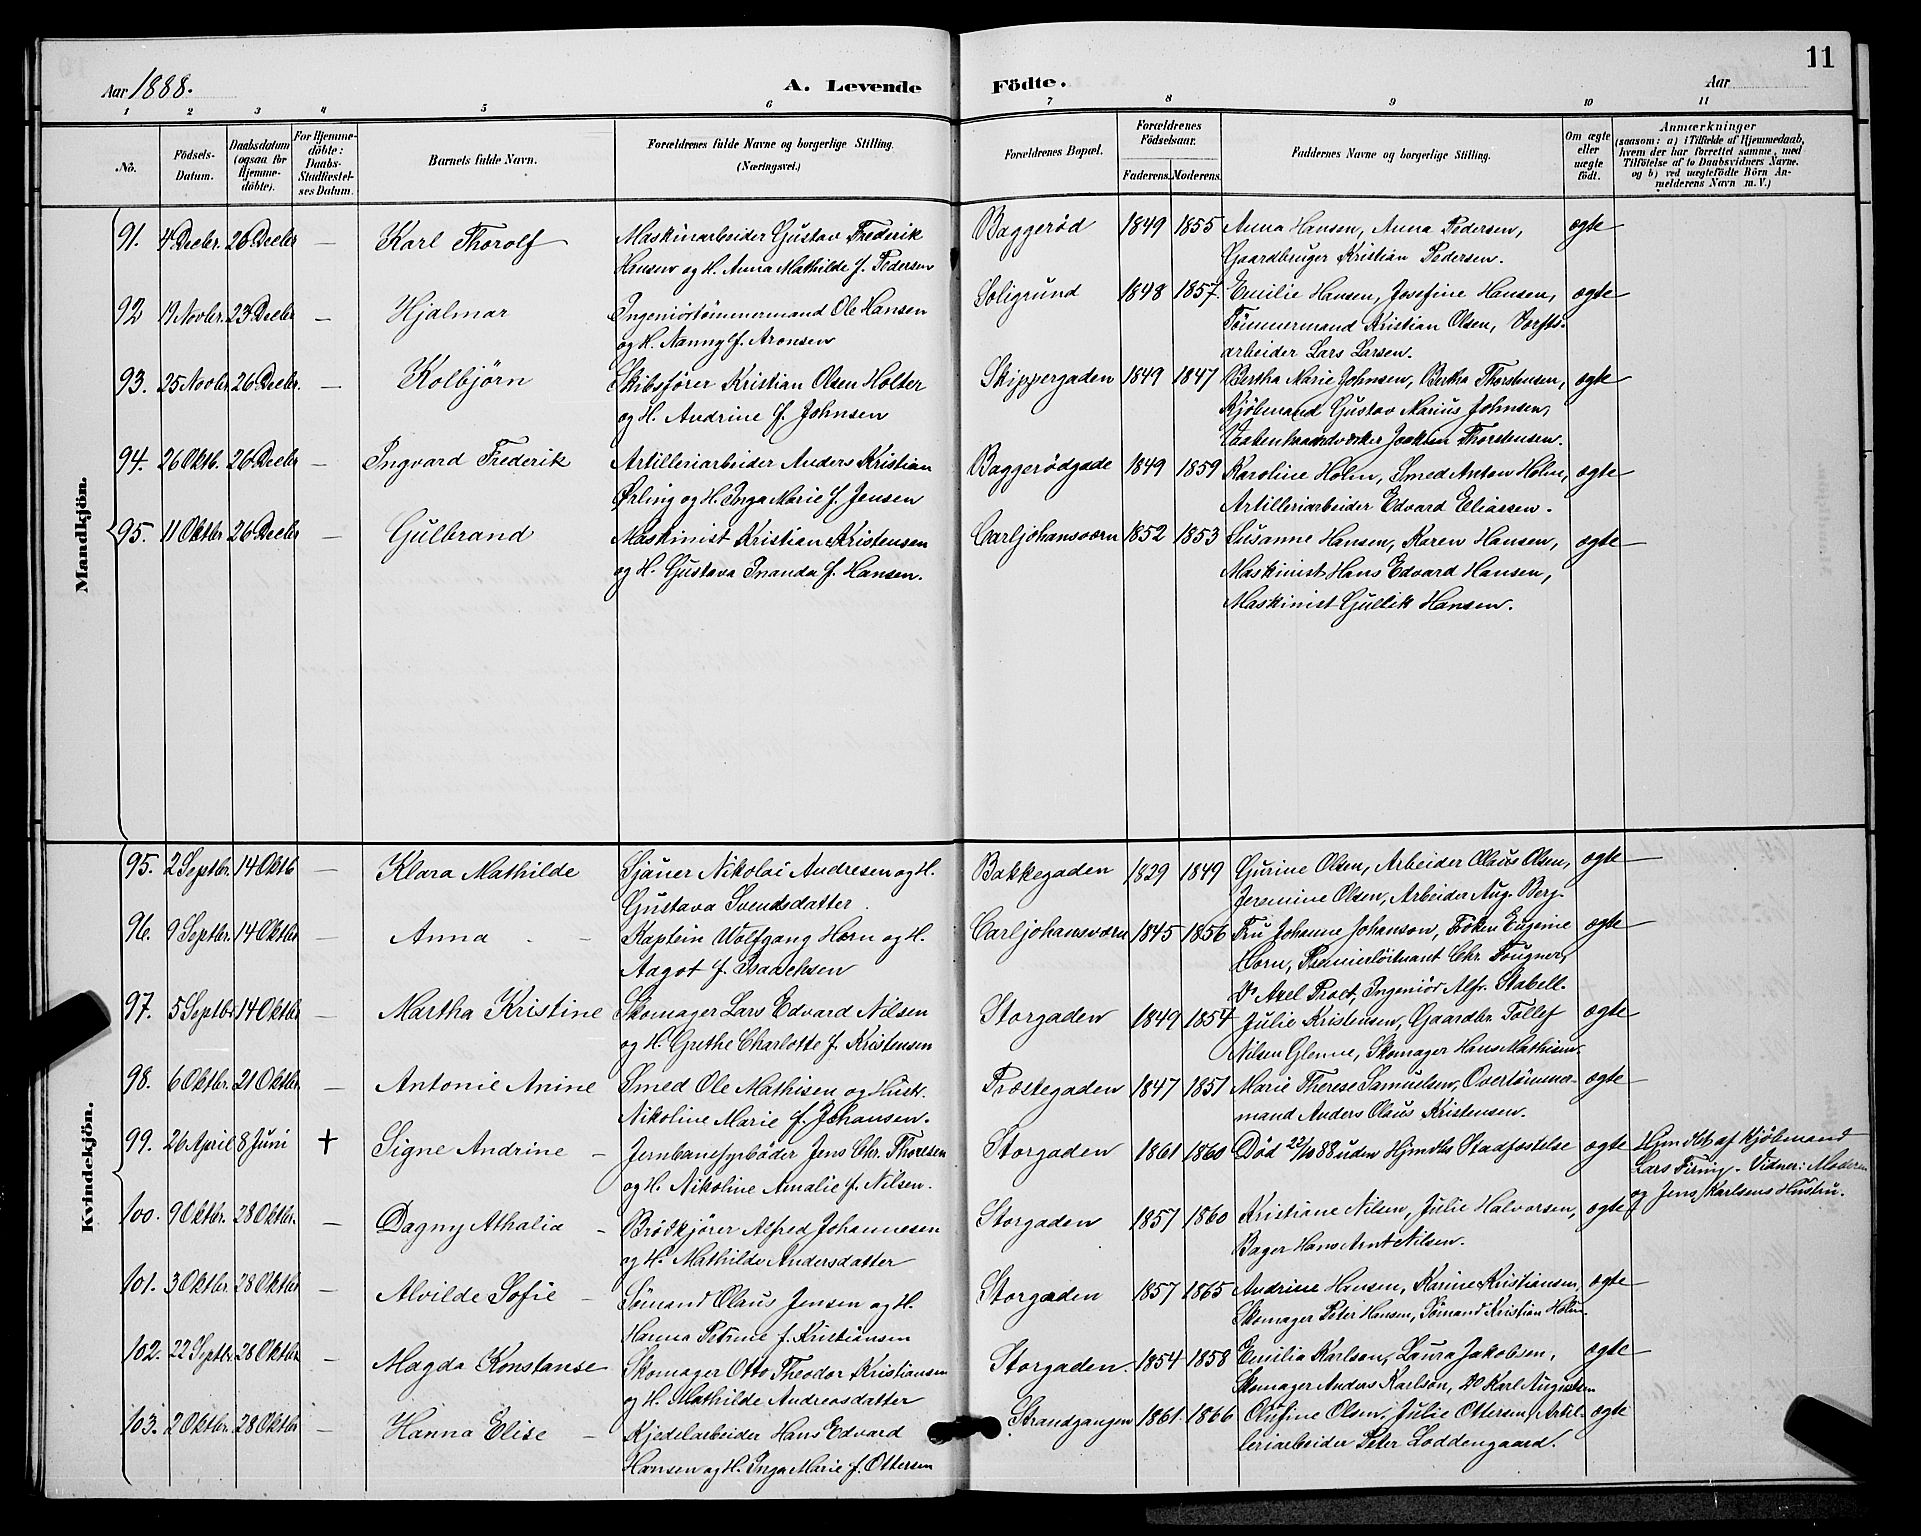 11
Aar 1888. A. Levende Födte. Aar
1 2 3 4 5 6 7 8 9 10 11
No. Födsels-Datum. Daabsdatum (ogsaa for Hjemme-döbte). For Hjemme-döbte: Daabs-Stadfæstelses Datum. Barnets fulde Navn. Forældrenes fulde Navne og borgerlige Stilling. (Næringsvei.) Forældrenes Bopæl. Forældrenes Födselsaar. Faderens. Moderens. Faddernes Navne og borgerlige Stilling. Om ægte eller uægte födt. Anmærkninger (saasom: a) i Tilfælde af Hjemmedaab, hvem der har forrettet samme, med Tilföielse af to Daabsvidners Navne. og b) ved uægtefödte Börn Anmelderens Navn m. V.)
Mandkjön.
91. 4 Decbr. 26 Decbr — Karl Thorolf Maskinarbeider Gustav Frederik Baggerød 1849 1855 Anna Hansen, Anna Pedersen, ægte
Hansen og H. Anna Mathilde f. Pedersen Gaardbruger Kristian Pedersen.
92 19 Novbr. 23 Decbr — Hjalmar Ingeniørtømmermand Ole Hansen Soligrund 1848 1857 Emilie Hansen, Josefine Hansen, ægte
og H. Nanny f. Aronsen Tömmermand Kristian Olsen, Verfts-
arbeider Lars Larsen.
93. 25 Novbr 26 Decbr — Kolbjörn Skibsfører Kristian Olsen Holter Skippergaden 1849 1847 Bertha Marie Johnsen, Bertha Thorstensen, ægte
og H. Andrine f. Johnsen Kjöbmand Gustav Marius Johnsen,
Vaabenhaandværker Joakim Thorstensen.
94. 26 Oktb. 26 Decbr — Ingvard Frederik Artilleriarbeider Anders Kristian Baggerødgade 1849 1859 Karoline Holm, Smed Anton Holm, ægte
Ørling og H. Inga Marie f. Jensen Artilleriarbeider Edvard Eliassen.
95. 11 Oktbr 26 Decbr — Gulbrand Maskinist Kristian Kristensen Carljohansværn 1852 1853 Susanne Hansen, Karen Hansen, ægte
og H. Gustava Inanda f. Hansen. Maskinist Hans Edvard Hansen,
Maskinist Gullik Hansen.
Kvindekjön.
95. 2 Septbr. 14 Oktb — Klara Mathilde Sjauer Nikolai Andresen og H. Bakkegaden 1829 1849 Gurine Olsen, Arbeider Olaus Olsen, ægte
Gustava Svendsdatter. Jeremine Olsen, Arbeider Aug. Berg.
96. 9 Septbr. 14 Oktbr — Anna Kaptein Wolfgang Horn og H. Carljohansværn 1845 1856 Fru Johanne Johanson, Frøken Eugenie ægte
Aagot f. Isaachsen Horn, Premierløitnant Chr. Fougner,
Do Axel Proet, Ingeniör Alfr. Stabell.
97. 5 Septbr 14 Oktbr — Martha Kristine Skomager Lars Edvard Nilsen Storgaden 1849 1854 Julie Kristensen, Gaardbr. Tollef ægte
og H. Grethe Charlotte f. Kristensen Nilsen Glenne, Skomager Hans Mathisen.
98. 6 Oktbr. 21 Oktbr. — Antonie Anine Smed Ole Mathisen og Hustr. Præstegaden 1847 1851 Marie Therese Samuelsen, Overtömmer- ægte
Nikoline Marie f. Johansen. mand Anders Olaus Kristensen.
99. 26 April 8 Juni + Signe Andrine — Jernbanefyrbøder Jens Chr. Thoresen Storgaden 1861 1860 Død 22/10 88 uden Hjmdbs Stadfæstelse ægte Hjmdbt af Kjöbmand
og H. Nikoline Amalie f. Nilsen. Lars Firing. Vidner: Moderen
og Jens Karlsens Hustru.
100. 9 Oktbr. 28 Oktbr. — Dagny Athalia — Brödkjører Alfred Johannesen Storgaden 1857 1860 Kristiane Nilsen, Julie Halvorsen, ægte
og H. Mathilde Andersdatter Bager Hans Arnt Nilsen.
101. 3 Oktbr. 28 Oktbr — Alvilde Sofie — Sømand Olaus Jensen og H. Storgaden 1857 1865 Andrine Hansen, Karine Kristiansen, ægte
Hanna Petrine f. Kristiansen Skomager Peter Hansen, Sømand Kristian Holm.
102. 22 Septbr. 28 Oktbr — Magda Konstanse Skomager Otto Theodor Kristiansen Storgaden. 1854 1858 Emilia Karlson, Laura Jakobsen, ægte
og H. Mathilde Andreasdatter Skomager Anders Karlson, Do Karl Augustsen
103. 2 Oktbr. 28 Oktbr — Hanna Elise — Kjedelarbeider Hans Edvard Strandgangen 1861. 1866 Olufine Olsen, Julie Ottersen, Artil- ægte
Hansen og H. Inga Marie f. Ottersen leriarbeider Peter Loddengaard.